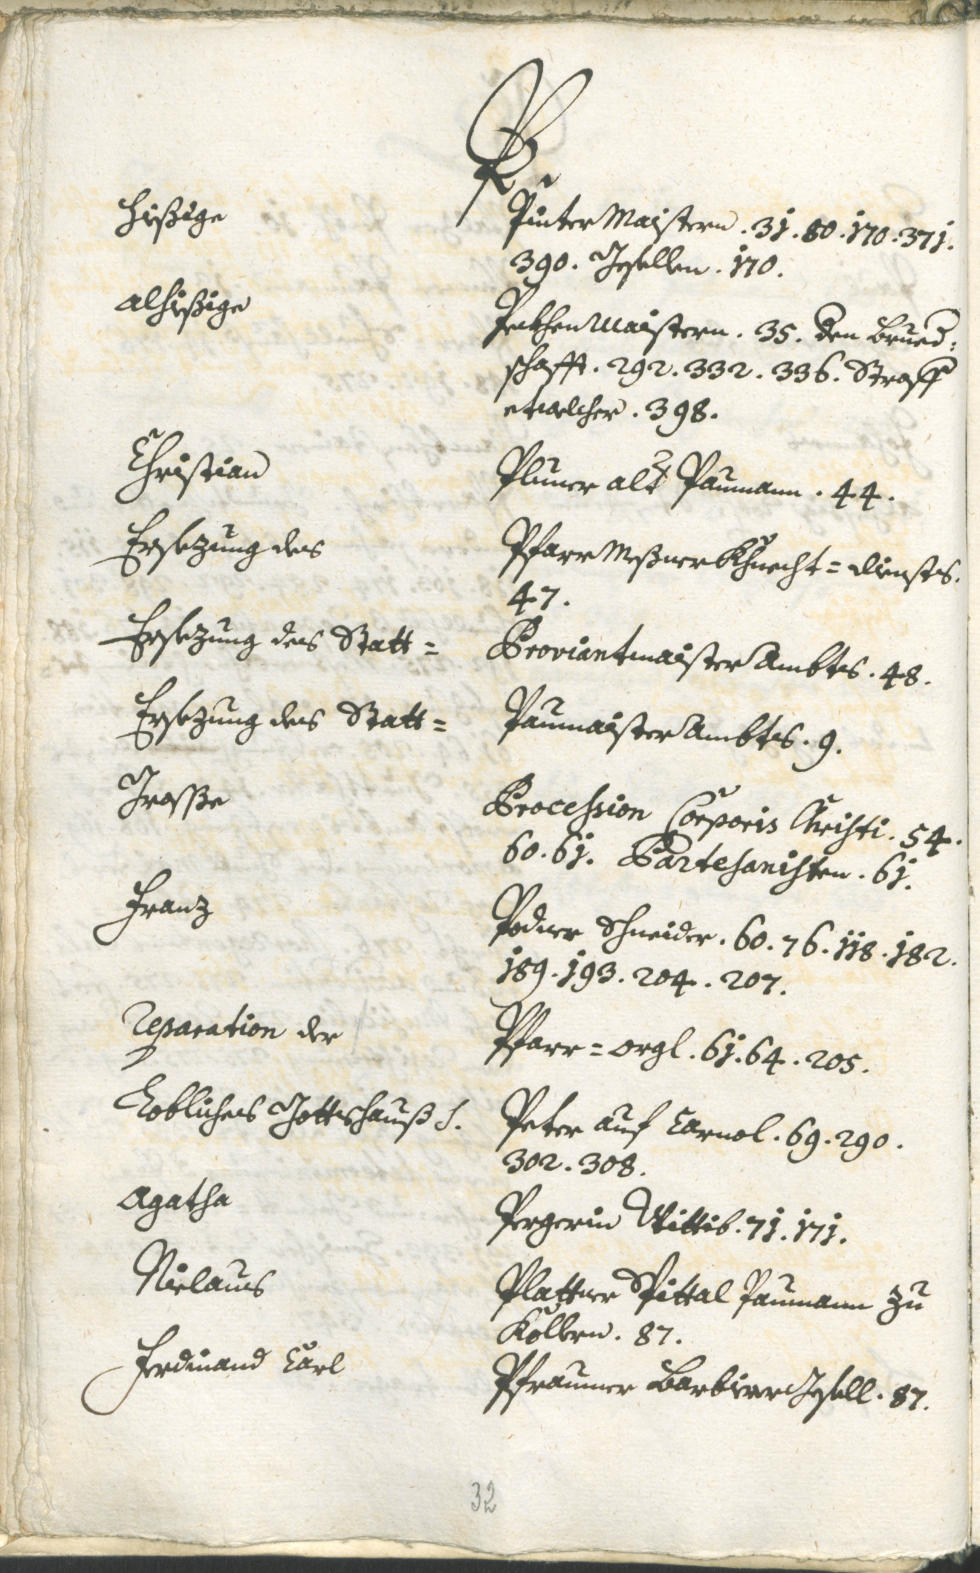 P.
hießige Pinter Maistern . 31 . 80 . 170 . 371 .
390 . Gesellen . 170 .
alhießige Pekhen Maistern . 35 . den Brued:
schafft . 292 . 332 . 336 . Straff
etwelcher . 398 .
Christian Pluner alß Paumann . 44 .
Ersezung des Pfarr Meßner Khnecht = diensts .
47 .
Ersezung des Statt = Proviantmaister Ambts . 48 .
Ersezung des Statt = Paumaister Ambts . 9 .
Grosse Procession Corporis Christi . 54 .
60 . 61 . Partesanisten . 61 .
Franz Podner Schneider . 60 . 76 . 118 . 182 .
189 . 193 . 204 . 207 .
reparation der Pfarr = orgl . 61 . 64 . 205 .
Lobliches Gottshauß S. Peter auf Carnol . 69 . 290 .
302 . 308 .
Agatha Pergerin Wittib . 71 . 171 .
Niclaus Plattner Spittal Paumann zu
Köllern . 87 .
Ferdinand Carl Pfraumer Barbierer Gesell . 87 .
32